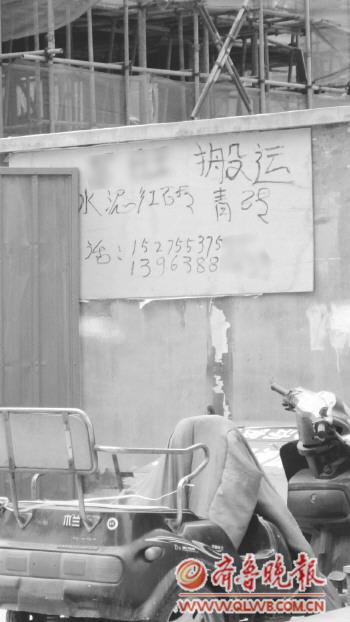 搬运
水泥红砖 青砖
话：152755375
1396388
木兰
齐鲁晚报
WWW.QLWB.COM.CN